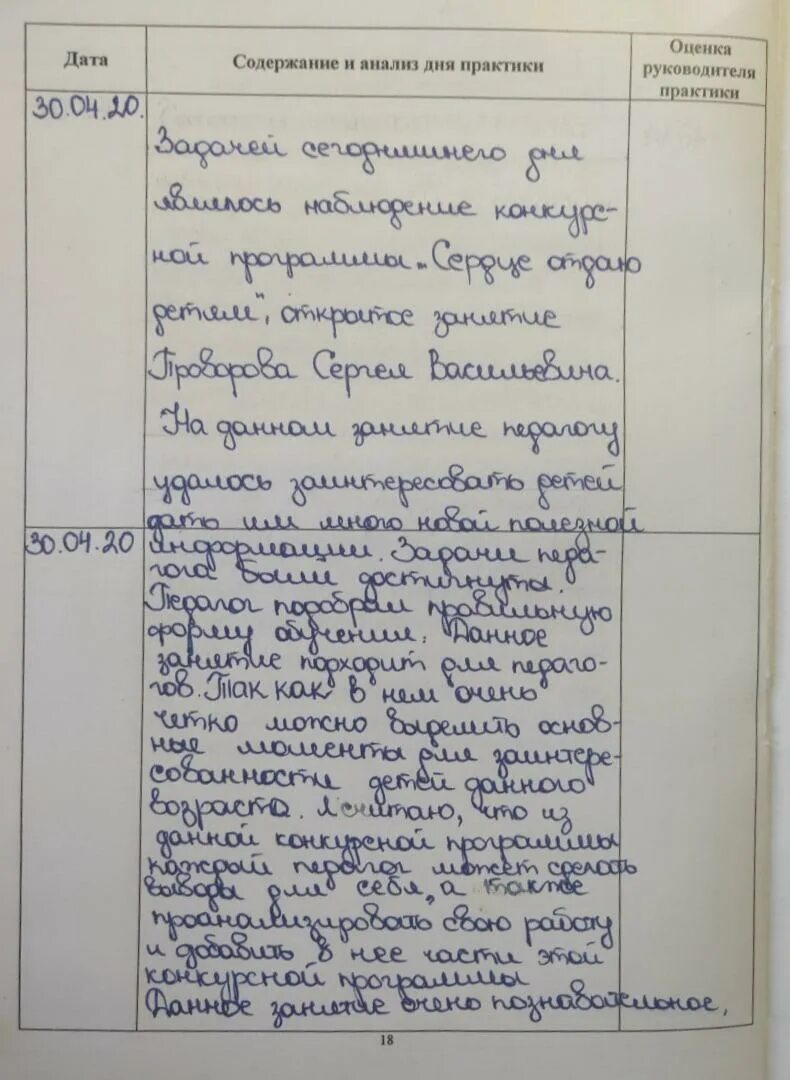 Дата
Содержание и анализ дня практики
Оценка
руководителя
практики
30.04.20.
Задачей сегоднишнего дня
являлось наблюдение конкурс-
ной программы „Сердце отдаю
детям", открытое занятие
Проворова Сергея Васильевича.
На данном занятие педагогу
удалось заинтересовать детей
дать им много новой полезной
30.04.20
информации. Задачи педа-
гога были достигнуты.
Педагог подобрал правильную
форму обучения. Данное
занятие подходит для педаго-
гов. Так как в нем очень
четко можно выделить основ-
ные моменты для заинтере-
сованности детей данного
возраста. Я считаю, что из
данной конкурсной программы
каждый педагог может сделать
выводы для себя, а также
проанализировать свою работу
и добавить в нее части этой
конкурсной программы
Данное занятие очено познавательное,
18